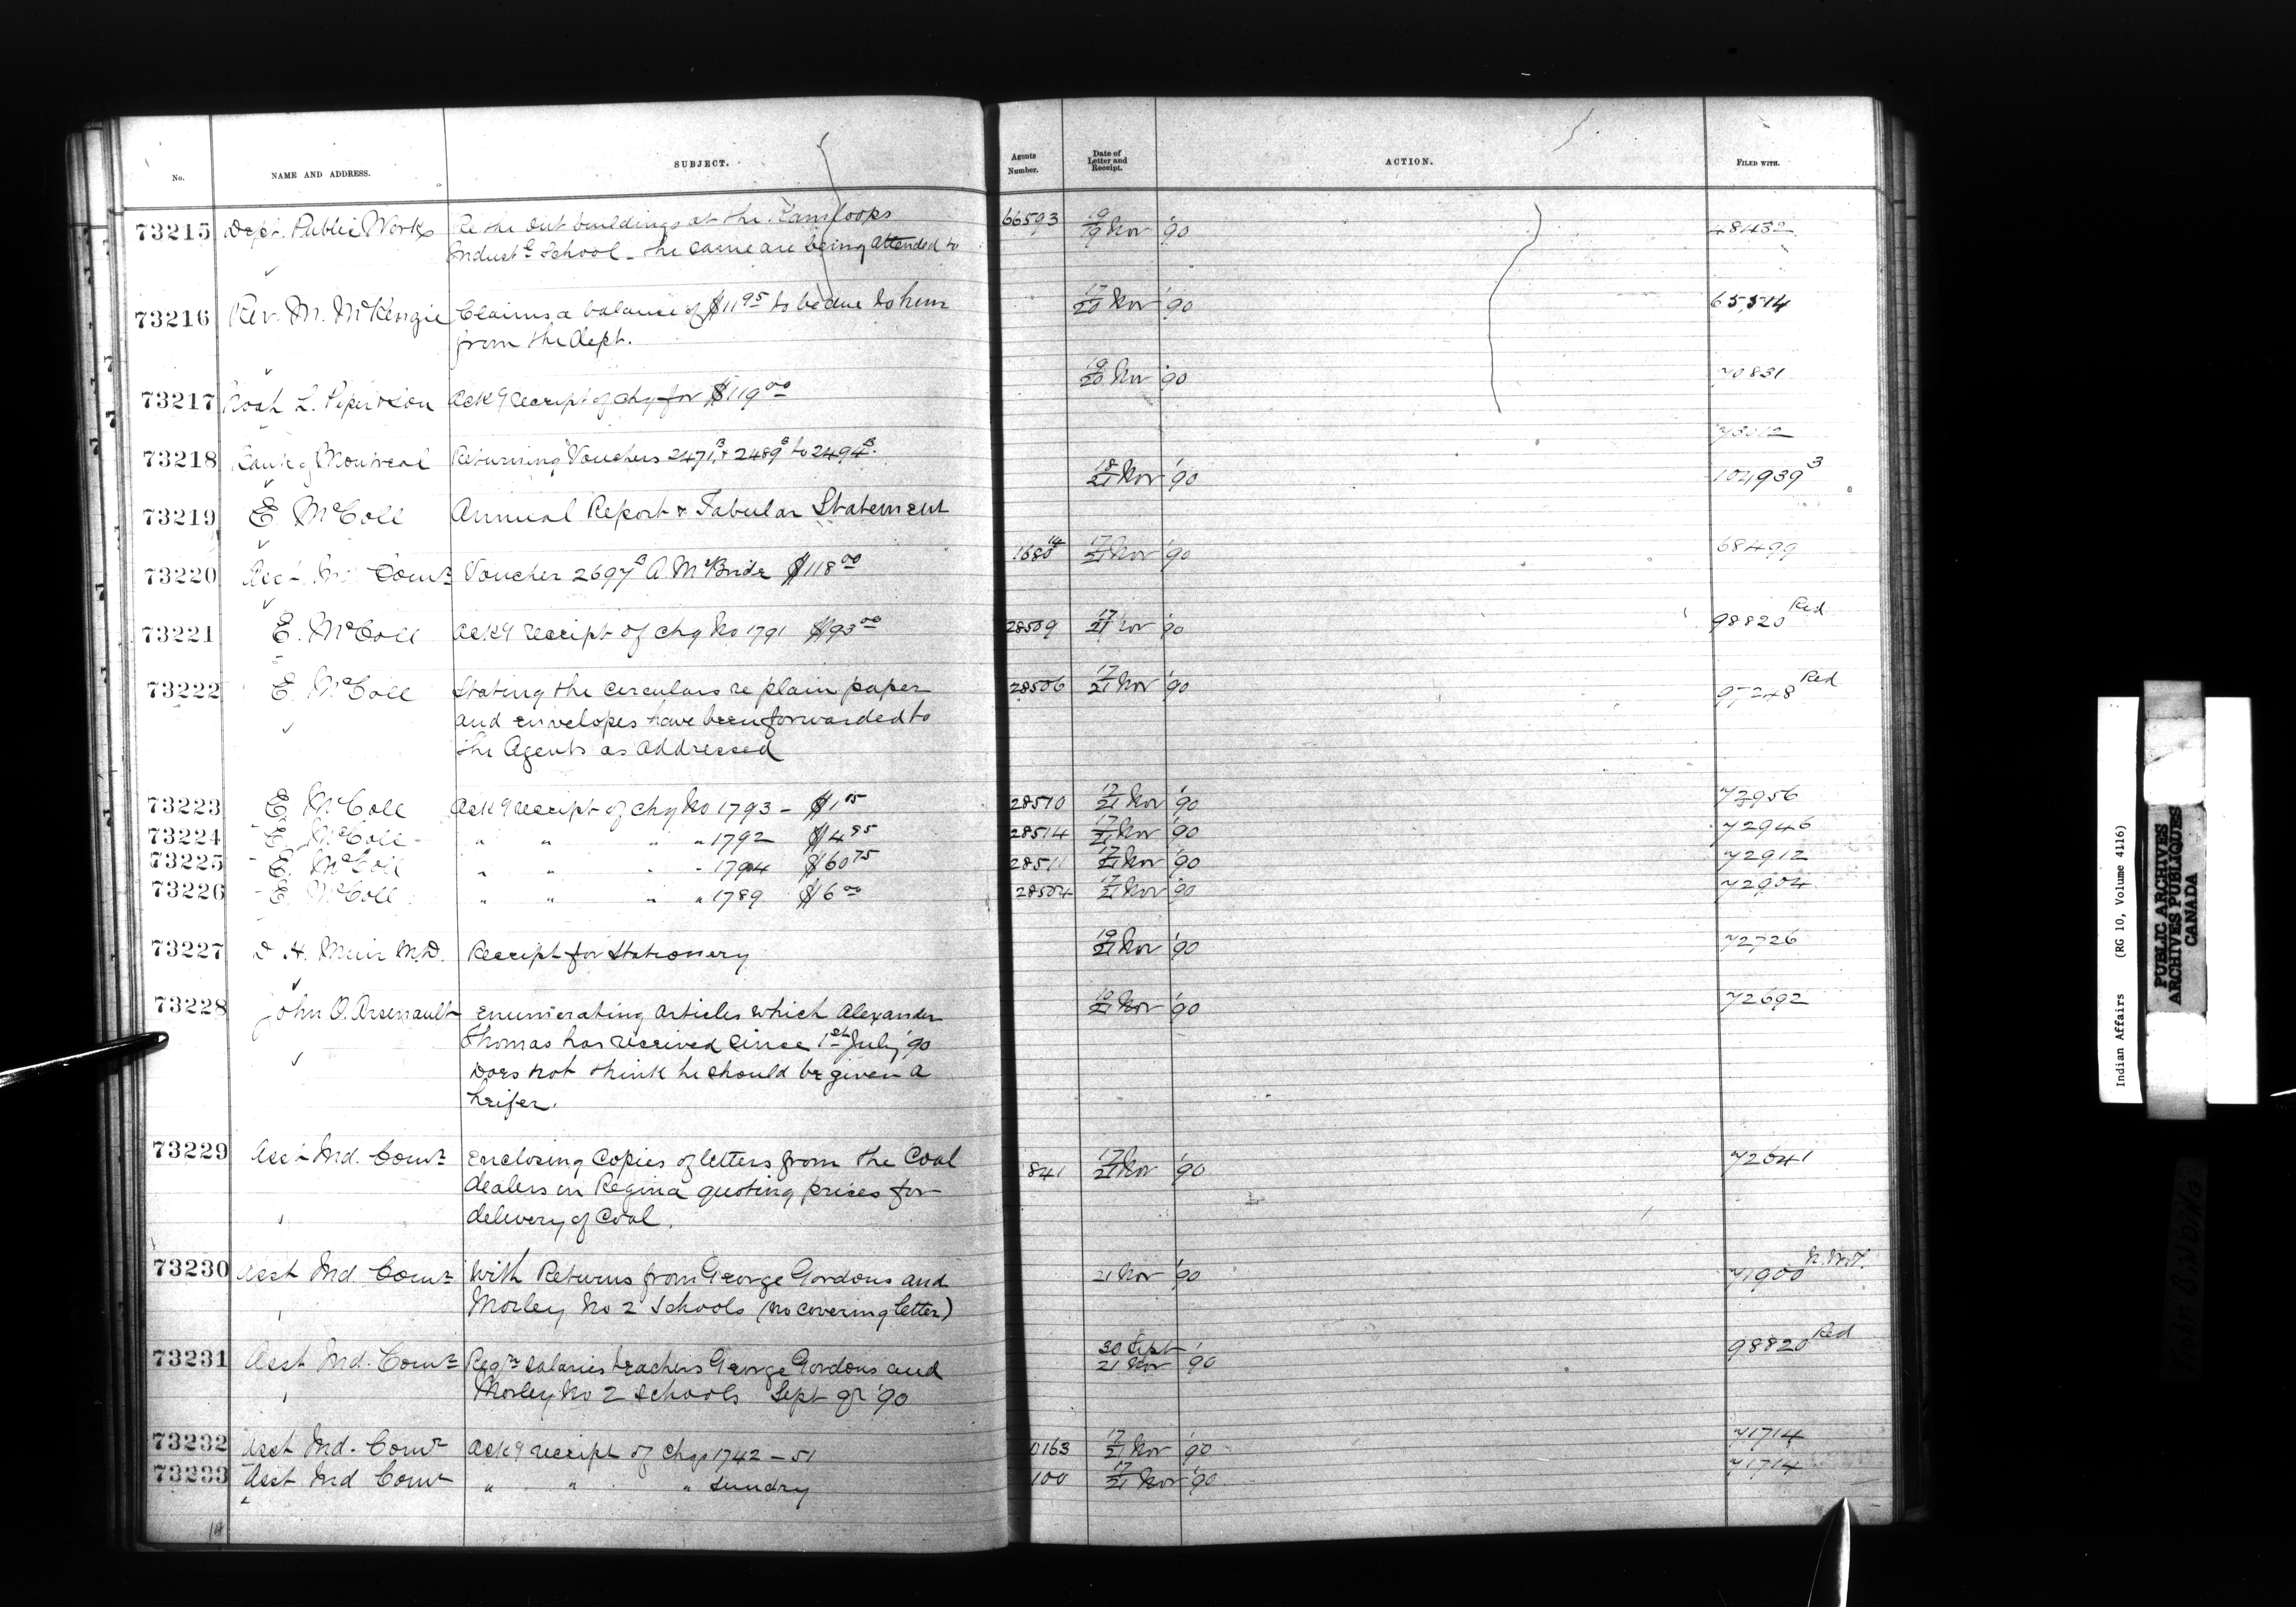 No. NAME AND ADDRESS. SUBJECT. Agents Number. Date of Letter and Receipt. ACTION. FILED WITH.
73215 Dept. Public Works Re the out buildings at the Kamloops 66593 19/19 Nov '90 48432
Indust'l School - the same are being attended to
73216 Rev. M. McKenzie Claims a balance of $11 95 to be due to him 17/20 Nov '90 65,514
from the Dept.
73217 Noah L. Piper & Son Ack'g receipt of chq for $119 00 19/20 Nov '90 70831
73218 Bank of Montreal Returning Vouchers 2471 B, & 2489 B to 2494 B. 73012
73219 E. McColl Annual Report & Tabular Statement 18/21 Nov '90 104939 3
73220 Asst. Ind Comr Voucher 2697 B A McBride $118 00 1680 14 17/21 Nov '90 68499
73221 E. McColl Ack'g receipt of chq No 1791 $93 00 28509 17/21 Nov '90 98820 Red
73222 E. McColl Stating the circulars re plain paper 28506 17/21 Nov '90 97248 Red
and envelopes have been forwarded to
the Agents as addressed
73223 E. McColl Ack'g receipt of chq No 1793 - $1 05 28510 17/21 Nov '90 72956
73224 E. McColl " " " " 1792 $4 95 28514 17/21 Nov '90 72946
73225 E. McColl " " " " 1794 $60 75 28511 17/21 Nov '90 72912
73226 E. McColl " " " " 1789 $6 00 28504 17/21 Nov '90 72904
73227 D. H. Muir M.D. Receipt for Stationery 19/21 Nov '90 72726
73228 John O. Arsenault Enumerating articles which Alexander 19/21 Nov '90 72692
Thomas has received since 1st July '90
Does not think he should be given a
heifer.
73229 Asst Ind. Comr Enclosing Copies of letters from the Coal 841 17/21 Nov '90 72641
dealers in Regina quoting prices for
delivery of Coal.
73230 Asst Ind Comr With Returns from George Gordons and 21 Nov '90 71900 N.W.T.
Morley No 2 Schools (no covering letter)
73231 Asst Ind. Comr Reqn salaries teachers George Gordons and 30 Sept 21 Nov '90 98820 Red
Morley No 2 Schools Sept qr '90
73232 Asst Ind. Comr Ack'g receipt of Chqs 1742 - 51 0163 17/21 Nov '90 71714
73233 Asst Ind Comr " " " Sundry 100 17/21 Nov '90 71714
14
Indian Affairs (RG 10, Volume 4116)
PUBLIC ARCHIVES
ARCHIVES PUBLIQUES
CANADA